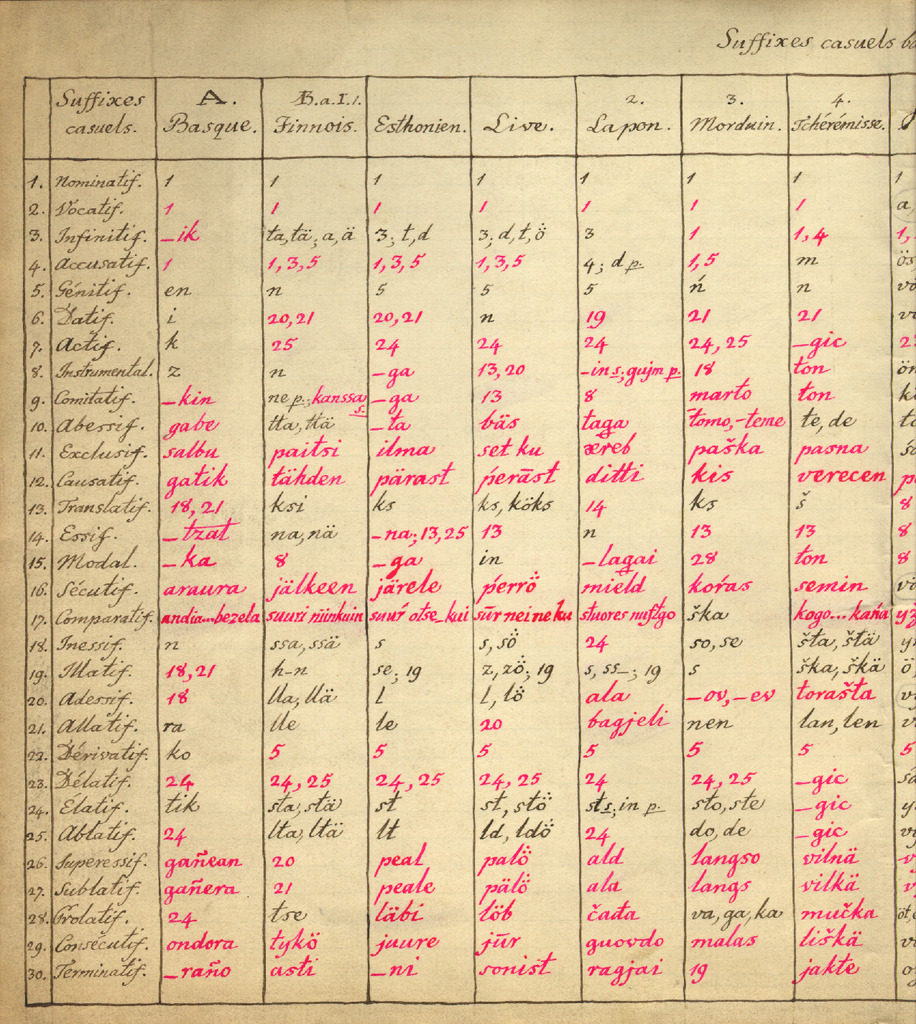 Suffixes casuels
Suffixes casuels. A. Basque. B.a.I.1. Finnois. Esthonien. Live. 2. Lapon. 3. Morduin. 4. Tchérémisse.
1. Nominatif. 1 1 1 1 1 1 1 1
2. Vocatif. 1 1 1 1 1 1 1 a
3. Infinitif. _ik ta, tä; a, ä 3; t, d 3; d, t, ö 3 1 1, 4 1,
4. Accusatif. 1 1, 3, 5 1, 3, 5 1, 3, 5 4; d p. 1, 5 m ös
5. Génitif. en n 5 5 5 ń n
6. Datif. i 20, 21 20, 21 n 19 21 21
7. Actif. k 25 24 24 24 24, 25 _gic
8. Instrumental. z n _ga 13, 20 _in s; gujm p. 18 ton
9. Comitatif. _kin ne p.; kanssa s. _ga 13 8 marto ton
10. Abessif. gabe tta, ttä _ta bäs taga tomo, -teme te, de
11. Exclusif. salbu paitsi ilma set ku æreb paška pasna
12. Causatif. gatik tähden pärast perāst ditti kis verecen
13. Translatif. 18, 21 ksi ks ks, köks 14 ks š 8
14. Essif. _tzat na, nä _na; 13, 25 13 n 13 13 8
15. Modal. _ka 8 _ga in _lagai 28 ton 8
16. Sécutif. araura jälkeen järele perrö mield koŕas semin
17. Comparatif. andia...bezela suuri niinkuin suur otse_kui sūr nei ne ku stuores nuftgo ška kogo...kańa yz
18. Inessif. n ssa, ssä s s, sö 24 so, se šta, štä
19. Illatif. 18, 21 h-n se; 19 z, zö; 19 s, ss_; 19 s ška, škä ö,
20. Adessif. 18 lla, llä l l, lö ala _ov, _ev torašta
21. Allatif. ra lle le 20 bagjeli nen lan, len
22. Dérivatif. ko 5 5 5 5 5 5 5
23. Délatif. 24 24, 25 24, 25 24, 25 24 24, 25 _gic
24. Élatif. tik sta, stä st st, stö st s; in p. sto, ste _gic
25. Ablatif. 24 lta, ltä lt ld, ldö 24 do, de _gic
26. Superessif. gañean 20 peal palö ald langso vilnä
27. Sublatif. gañera 21 peale pälö ala langs vilkä
28. Prolatif. 24 tse läbi löb čađa va, ga, ka mučka
29. Consécutif. ondora tykö juure jūr guovdo malas liškä
30. Terminatif. _raño asti _ni sonist ragjai 19 jakte